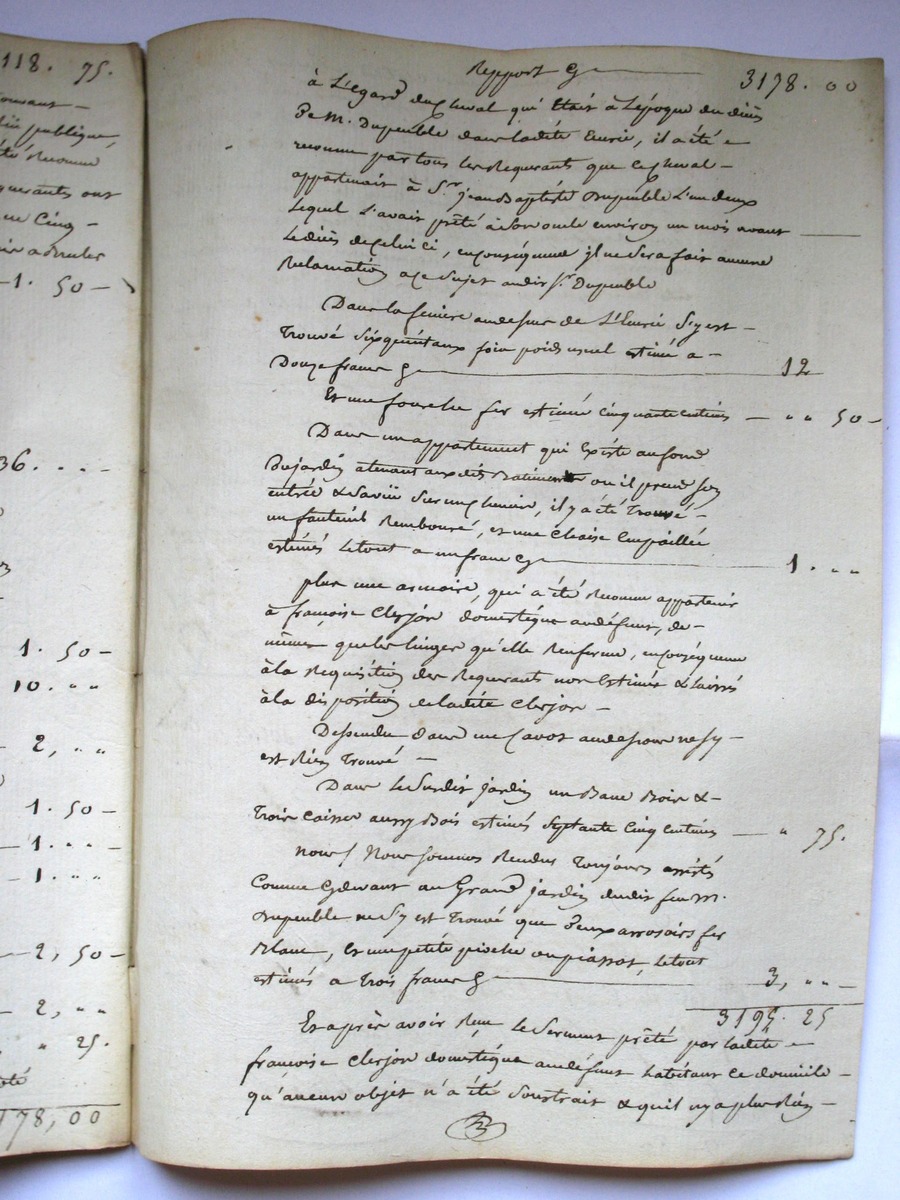 118. 75.
publique,
été Reconnu
querants ont
en Cinq –
1. 50 –
36. " " –
1. 50 –
10. " "
2, " "
1. 50 –
1. " " –
1. " "
2, 50 –
2, " "
" 25.
178,00
Repport 3178. 00
à L'egard du cheval qui était à Lépoque du décès
de M. Dupeuble dans ladite Ecurie, il a été
reconnu par tous les Requerants que ce cheval –
appartenait à Sr. jean Baptiste Dupeuble L'un deux
Lequel L'avait prêté à son oncle environ un mois avant
Le décès de celui ci, en conséquence il ne sera fait aucune
Reclamation a ce Sujet audit Sr. Dupeuble
Dans la feniere au dessus de L'Ecurie S'y est –
Trouvé Six quintaux foin poids usuel estimé a –
Douze francs 12
Et une fourche fer estimée cinquante centimes – " " 50 –
Dans un appartement qui Existe au fond
Du jardin atenant auxdits Batiments ou il prend son
entrée & Savüe Sur un chemin, il y a été Trouvé –
un fauteuil Rembouré, et une Chaise Empaillée
estimés Le tout a un franc 1. " "
plus une armoire, qui a été Reconnu appartenir
à françoise Clerjon domestique au défunt, de –
même que les linges qu'elle Renferme, en conséquence
à la Requisition des Requerants non Estimée & laissée
à la disposition de ladite Clerjon –
Dessendu dans un Cavot au dessous ne s'y –
est Rien Trouvé –
Dans Le Susdit jardin un Banc Bois & –
Trois Caisses aussy Bois estimés Septante Cinq Centimes – " 75.
nous / Nous sommes Rendus Toujours assistés
Comme Cydevant au Grand jardin dudit feu M.
Dupeuble ne S'y est Trouvé que deux arrosoirs fer
Blanc, Et une petite pioche ou piassot, Le tout
estimés a Trois francs 3, " " –
3195. 25
Et après avoir Reçu Le Serment prêté par ladite
françoise Clerjon domestique au défunt habitant ce domicile –
qu'aucun objet n'a été Soustrait & qu'il n'y a plus Rien –